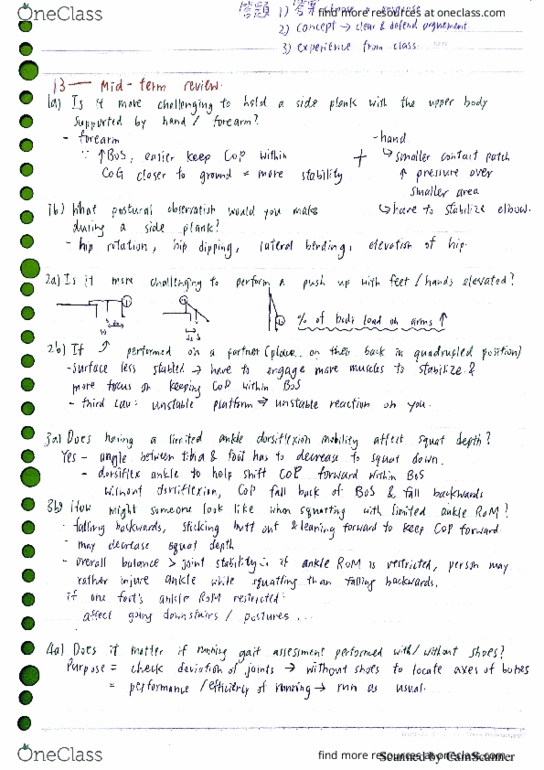 OneClass
find more resources at oneclass.com
答題 1)
2) concept → clear & defend arguement
3) experience from class
13 — Mid-term review.
1a) Is it more challenging to hold a side plank with the upper body
supported by hand / forearm?
- forearm
∵ ↑BoS, easier keep CoP within
CoG closer to ground = more stability
+
- hand
↳ smaller contact patch
↑ pressure over
smaller area
↳ have to stabilize elbow.
1b) What postural observation would you make
during a side plank?
- hip rotation, hip dipping, lateral bending, elevation of hip.
2a) Is it more challenging to perform a push up with feet / hands elevated?
% of body load on arms ↑
2b) If ↗ performed on a partner (place.. on their back in quadruped position)
- surface less stabled → have to engage more muscles to stabilize &
more focus on keeping CoP within BoS
- third Law: unstable platform → unstable reaction on you.
3a) Does having a limited ankle dorsiflexion mobility affect squat depth?
Yes - angle between tibia & foot has to decrease to squat down.
- dorsiflex ankle to help shift CoP forward within BoS
Without dorsiflexion, CoP fall back of BoS & fall backwards
3b) How might someone look like when squatting with limited ankle RoM?
- falling backwards, sticking butt out & leaning forward to keep CoP forward
- may decrease squat depth
- overall balance > joint stability ∴ if ankle RoM is restricted, person may
rather injure ankle while squatting than falling backwards.
if one foot's ankle RoM restricted:
affect going downstairs / postures ...
4a) Does it matter if running gait assessment performed with / without shoes?
Purpose = check deviation of joints → without shoes to locate axes of bones
= performance / efficiency of running → run as usual.
OneClass
find more resources at oneclass.com
Scanned by CamScanner